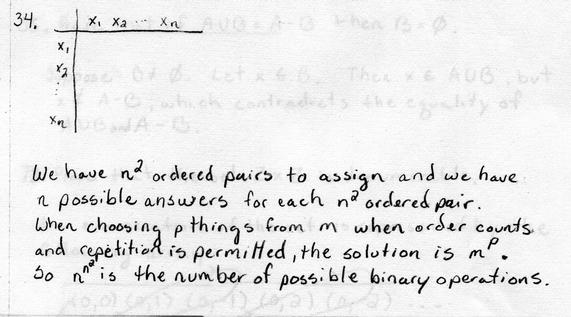 34. x₁ x₂ ... xₙ
x₁
x₂
:
xₙ
We have n² ordered pairs to assign and we have
n possible answers for each n² ordered pair.
When choosing p things from m when order counts
and repetition is permitted, the solution is mᵖ.
So n^n² is the number of possible binary operations.